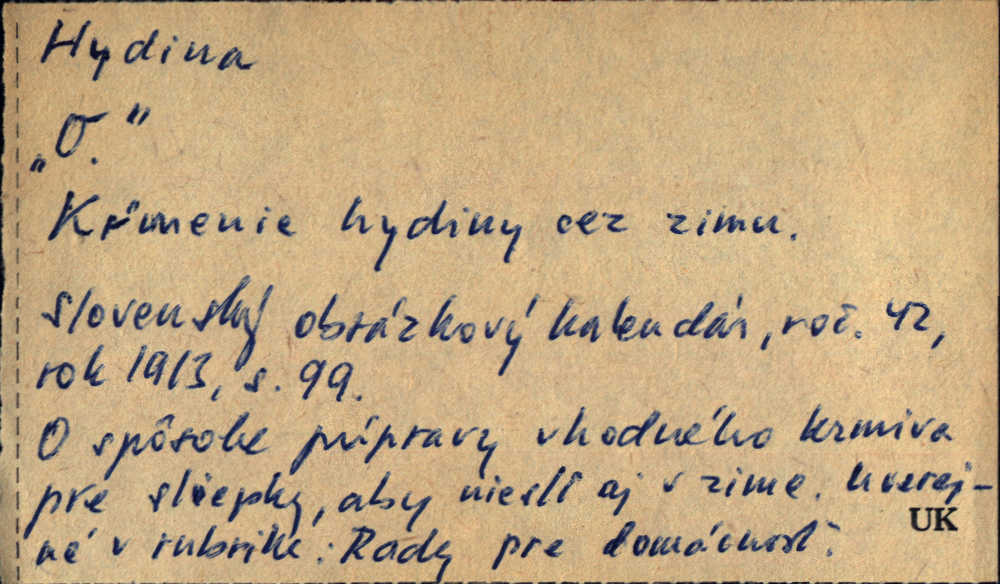 Hydina
„O."
Kŕmenie hydiny cez zimu.
Slovenský obrázkový kalendár, roč. 42,
rok 1913, s. 99.
O spôsobe prípravy vhodného krmiva
pre sliepky, aby niesli aj v zime. Uverej-
né v rubrike: Rady pre domácnosť.
UK